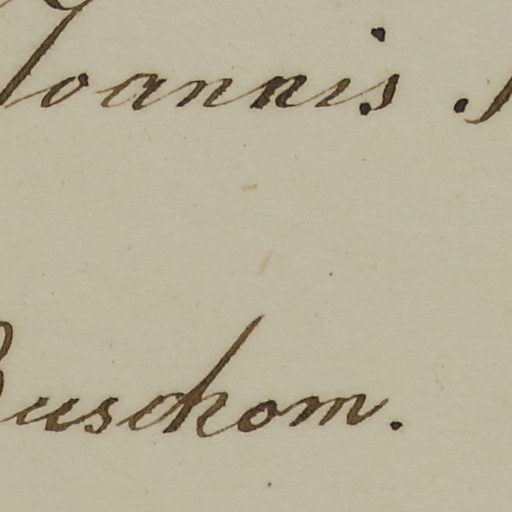 Joannis.
Buschom.